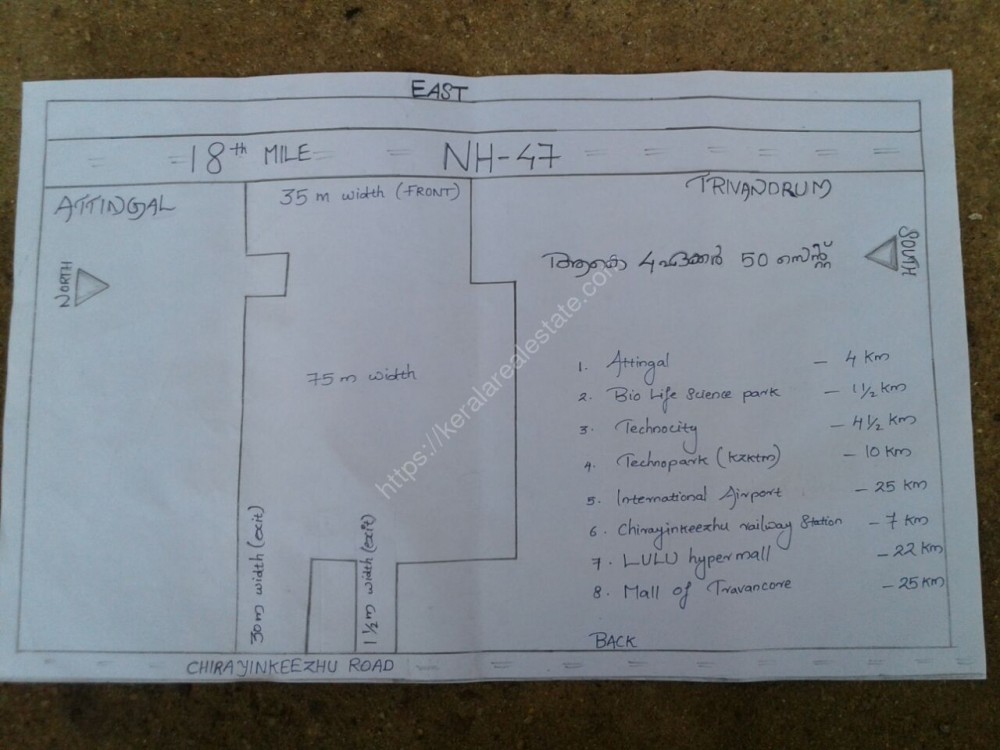 EAST
18th MILE NH-47
ATTINGAL
35 m width (FRONT)
TRIVANDRUM
NORTH
SOUTH
ആകെ 4 ഏക്കർ 50 സെന്റ്
75 m width
1. Attingal - 4 Km
2. Bio Life Science park - 1 1/2 Km
3. Technocity - 4 1/2 Km
4. Technopark (KZKTM) - 10 Km
5. International Airport - 25 Km
6. Chirayinkeezhu railway Station - 7 Km
7. LULU hypermall - 22 Km
8. Mall of Travancore - 25 Km
30 m width (exit)
1 1/2 m width (exit)
BACK
CHIRAYINKEEZHU ROAD
https://keralarealestate.com